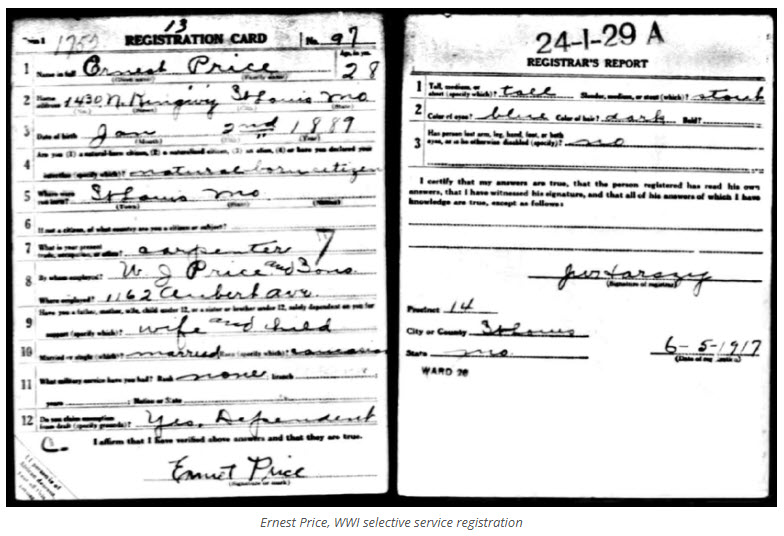 13
1752 REGISTRATION CARD No. 97
1 Name in full Ernest Price Age, in yrs. 28
2 Home address 1430 N. Kingwy St Louis Mo
3 Date of birth Jan 2nd 1889
(Month) (Year)
4 Are you (1) a natural-born citizen, (2) a naturalized citizen, (3) an alien, (4) or have you declared your
intention (specify which)? natural born citizen
5 Where were you born? St Louis Mo
(Town)
6 If not a citizen, of what country are you a citizen or subject?
7 What is your present trade, occupation, or office? carpenter 7
8 By whom employed? W. J Price and Sons
Where employed? 1162 Aubert Ave
9 Have you a father, mother, wife, child under 12, or a sister or brother under 12, solely dependent on you for
support (specify which)? wife and child
10 Married or single (which)? married Race (specify which)? Caucasian
11 What military service have you had? Rank none branch
years Nation or State
12 Do you claim exemption from draft (specify grounds)? Yes, Dependent
C. I affirm that I have verified above answers and that they are true.
Ernet Price
(Signature or mark)
24-1-29 A
REGISTRAR'S REPORT
1 Tall, medium, or short (specify which)? tall Slender, medium, or stout (which)? stout
2 Color of eyes? blue Color of hair? dark Bald?
3 Has person lost arm, leg, hand, foot, or both
eyes, or is he otherwise disabled (specify)? no
I certify that my answers are true, that the person registered has read his own
answers, that I have witnessed his signature, and that all of his answers of which I have
knowledge are true, except as follows:
(Signature of registrar)
Precinct 14
City or County St Louis
State Mo. 6-5-1917
WARD 26
Ernest Price, WWI selective service registration